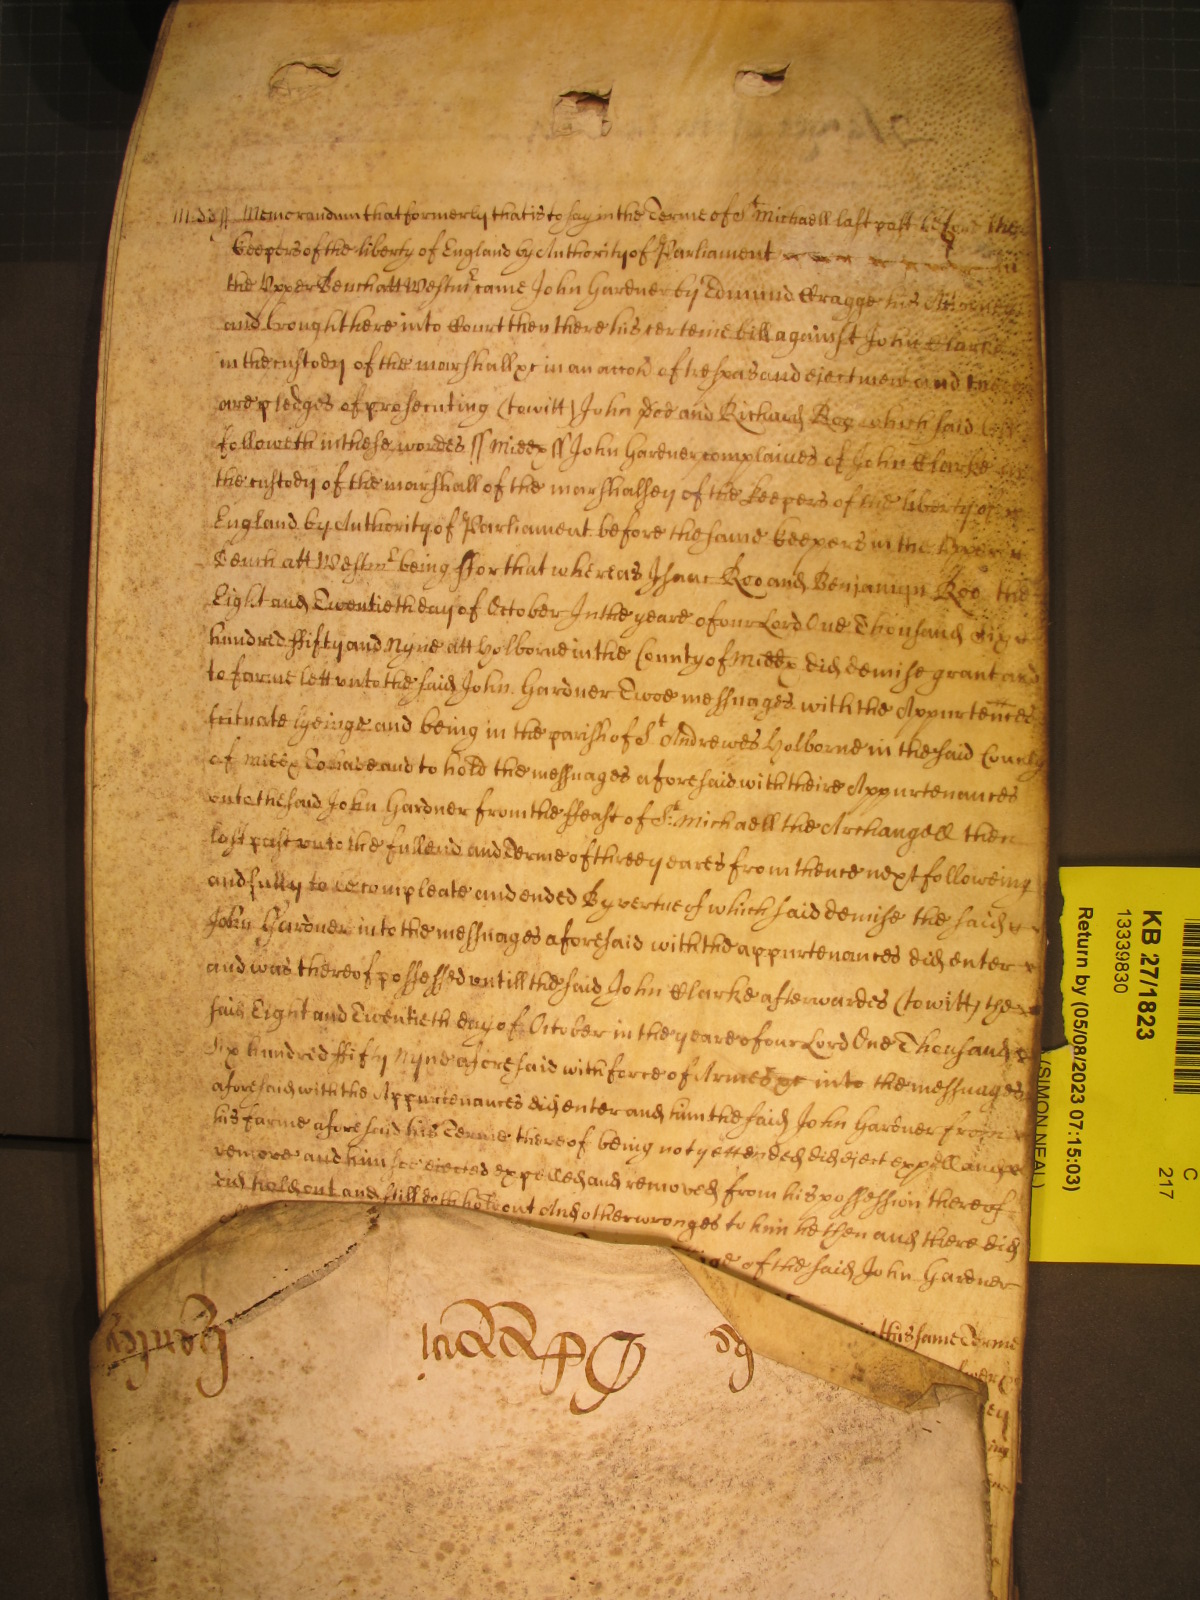 Midd ss Memorandum that formerly that is to say in the Terme of St Michaell last past before the
keepers of the liberty of England by Authority of Parliament in
the Upper Bench att Westmr came John Gardner by Edmund Wragge his Attorney
and brought here into Court then there his certeine bill against John Clarke
in the custody of the marshall &c in an accon of trespas and ejectment and there
are pledges of prosecuting (to witt) John Doe and Richard Roo which said bill
followeth in these wordes ss Middx ss John Gardner complaines of John Clarke in
the custody of the marshall of the marshalsey of the keepers of the liberty of
England by Authority of Parliament before the same keepers in the Upper
Bench att Westmr being ffor that whereas Isaac Roo and Benjamyn Roo the
Eight and Twentieth day of October In the yeare of our Lord One Thousand six
hundred ffifty and Nyne att Holborne in the County of Middx did demise grant and
to farme lett unto the said John Gardner Twoe messuages with the Appurtences
scituate lyeinge and being in the parish of St Andrewes Holborne in the said County
of Middx To have and to hold the messuages aforesaid with theire Appurtenances
unto the said John Gardner from the ffeast of St Michaell the Archangell then
last past unto the full end and Terme of three yeares from thence next followeing
and fully to be compleate and ended By vertue of which said demise the said
John Gardner into the messuages aforesaid with the appurtenances did enter
and was thereof possessed untill the said John Clarke afterwardes (to witt) the
said Eight and Twentieth day of October in the yeare of our Lord One Thousand
Six hundred ffifty Nyne aforesaid with force of Armes &c into the messuages
aforesaid with the Appurtenances did enter and him the said John Gardner from
his farme aforesaid his Terme thereof being not yett ended did eject expell and
remove and him soe ejected expelled and removed from his possession thereof
did hold out and still doth hold out And other wronges to him he then and there did
of the said John Gardner
in this same Terme
KB 27/1823
13339830
Return by (05/08/2023 07:15:03)
(SIMON NEAL)
C
217